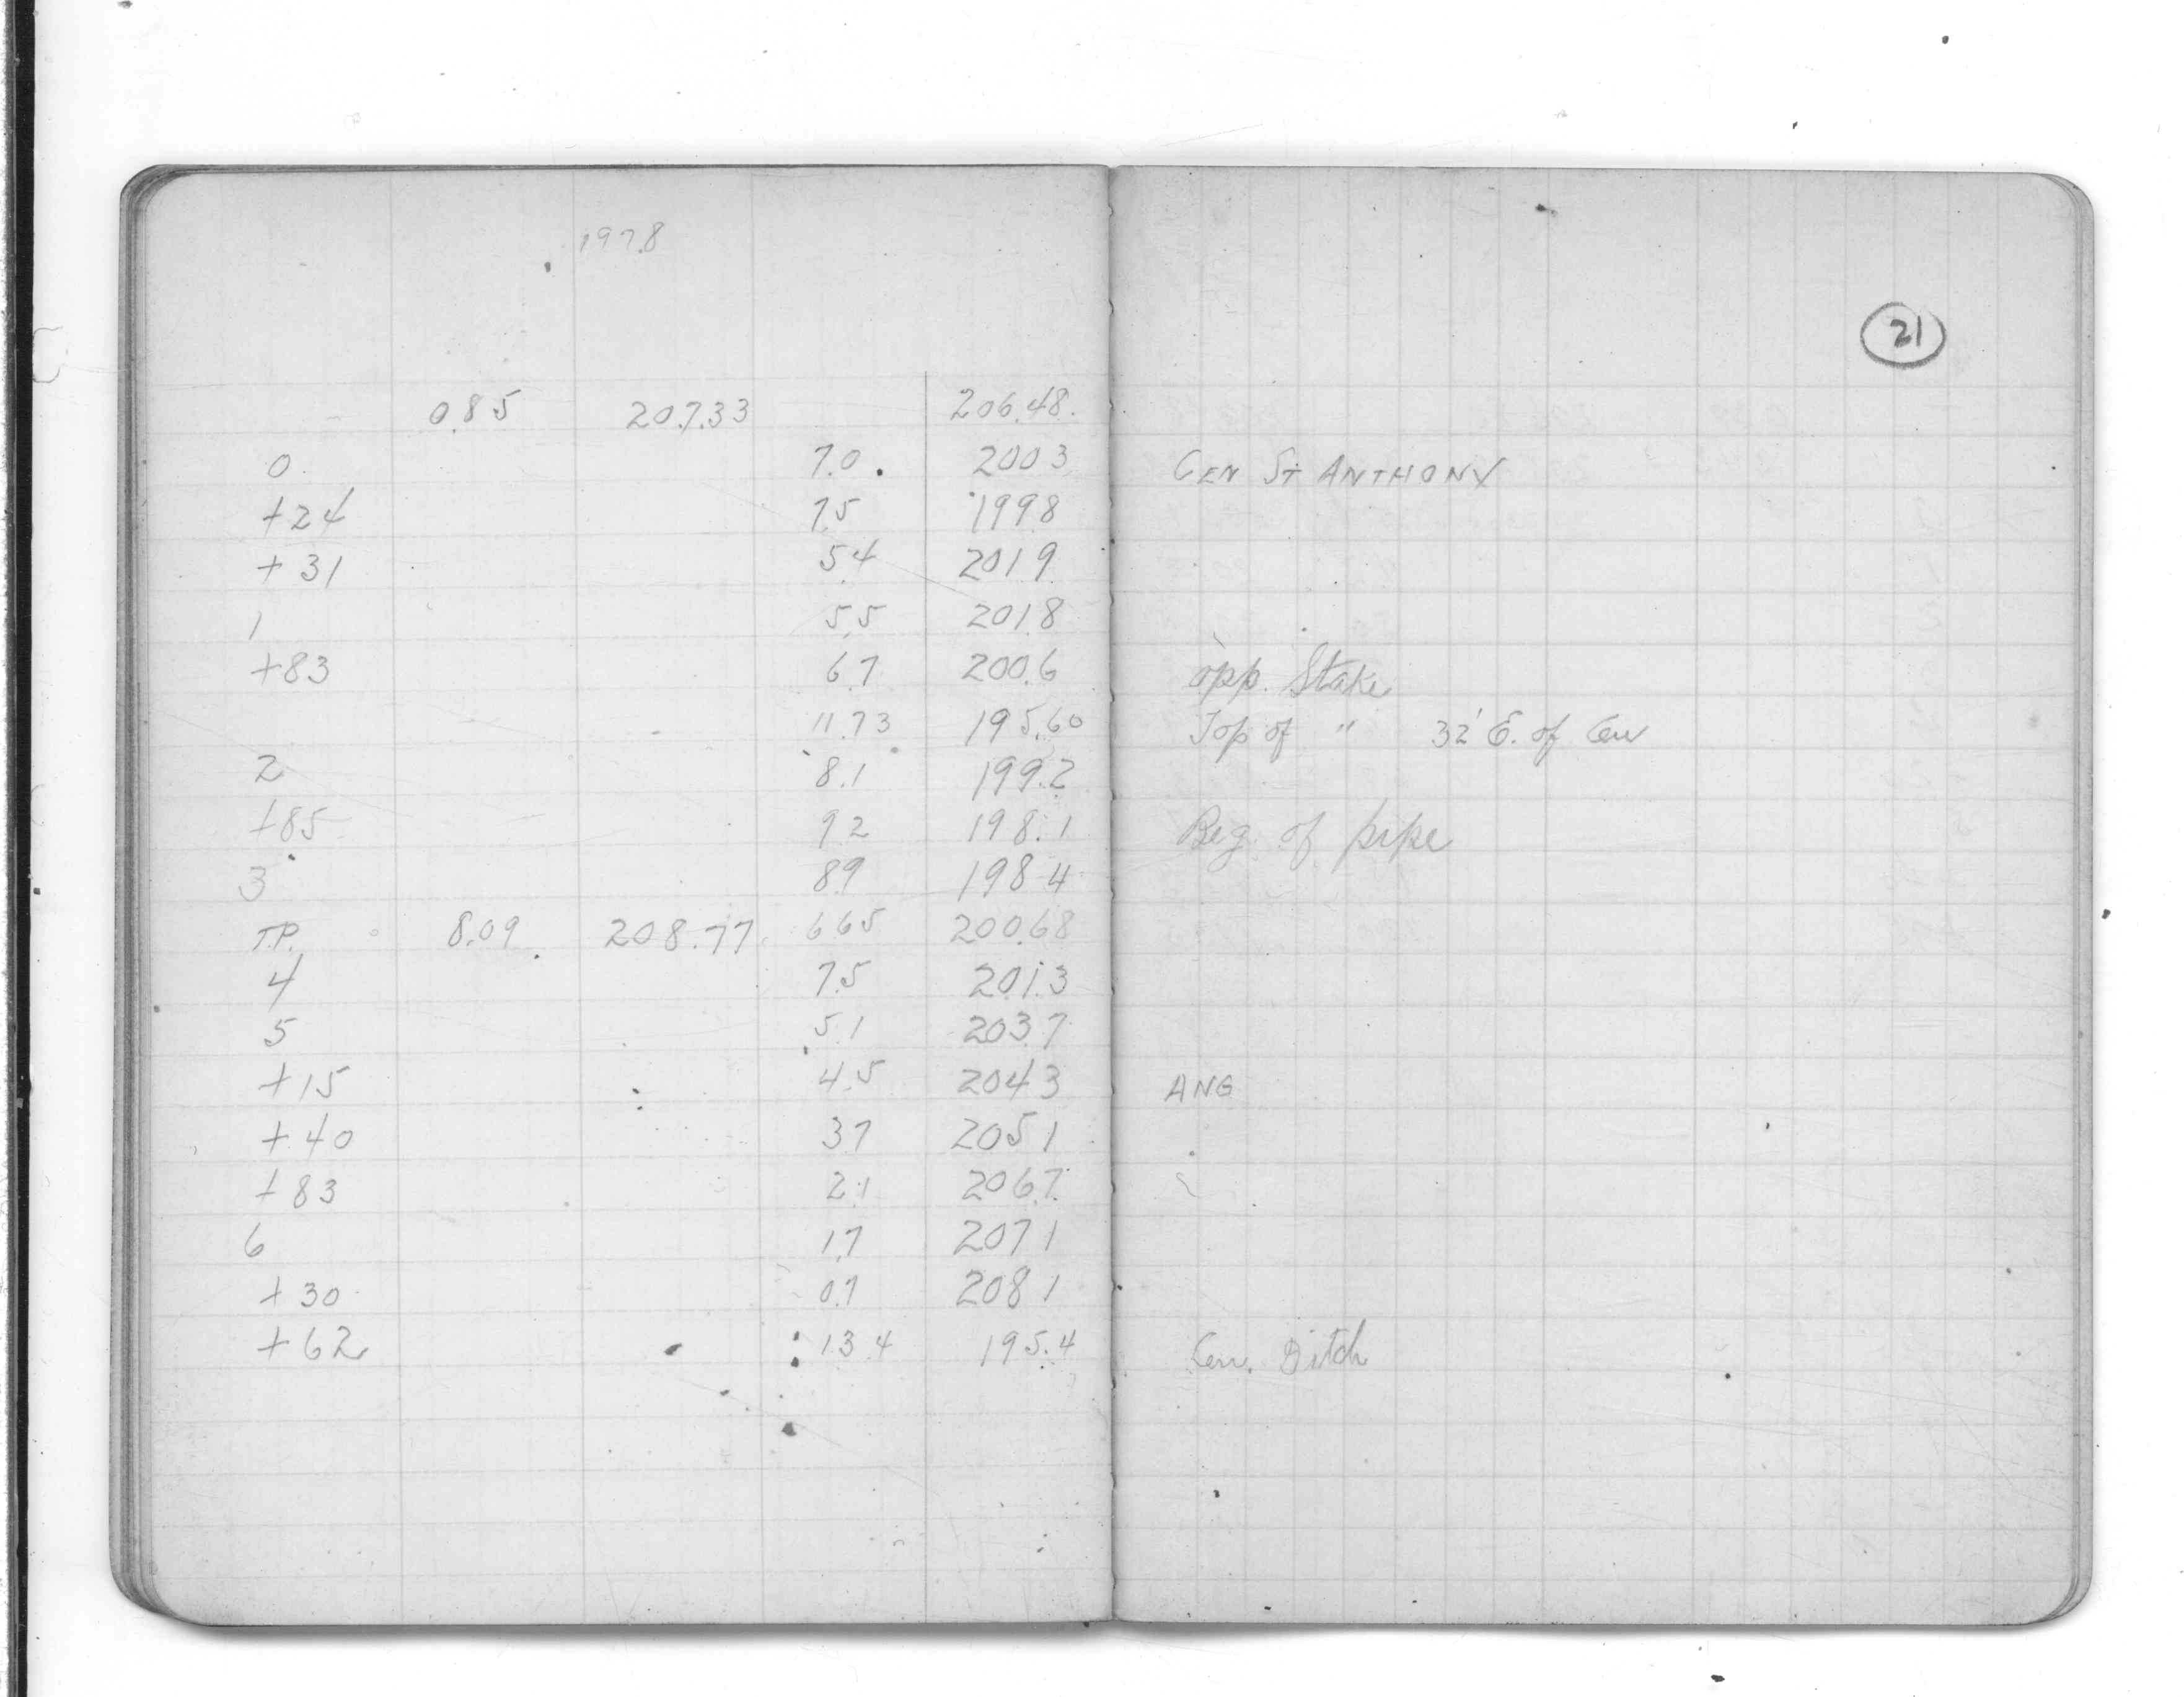 197.8
21
0.85 207.33 206.48
0 7.0 200 3 CEN ST ANTHONY
+24 7.5 199 8
+31 5.4 201 9
1 5.5 201 8
+83 6 7 200.6 opp. Stake
11.73 195.60 Top of " 32' E. of Cen
2 8.1 199.2
+85 9 2 198.1 Beg. of pipe
3 8.9 198 4
T.P. 8.09 208.77 6 65 200.68
4 7.5 201.3
5 5.1 203.7
+15 4.5 204 3 ANG
+40 3.7 205 1
+83 2.1 206.7
6 1.7 207 1
+30 0.7 208 1
+62 13.4 195.4 Cen. Ditch